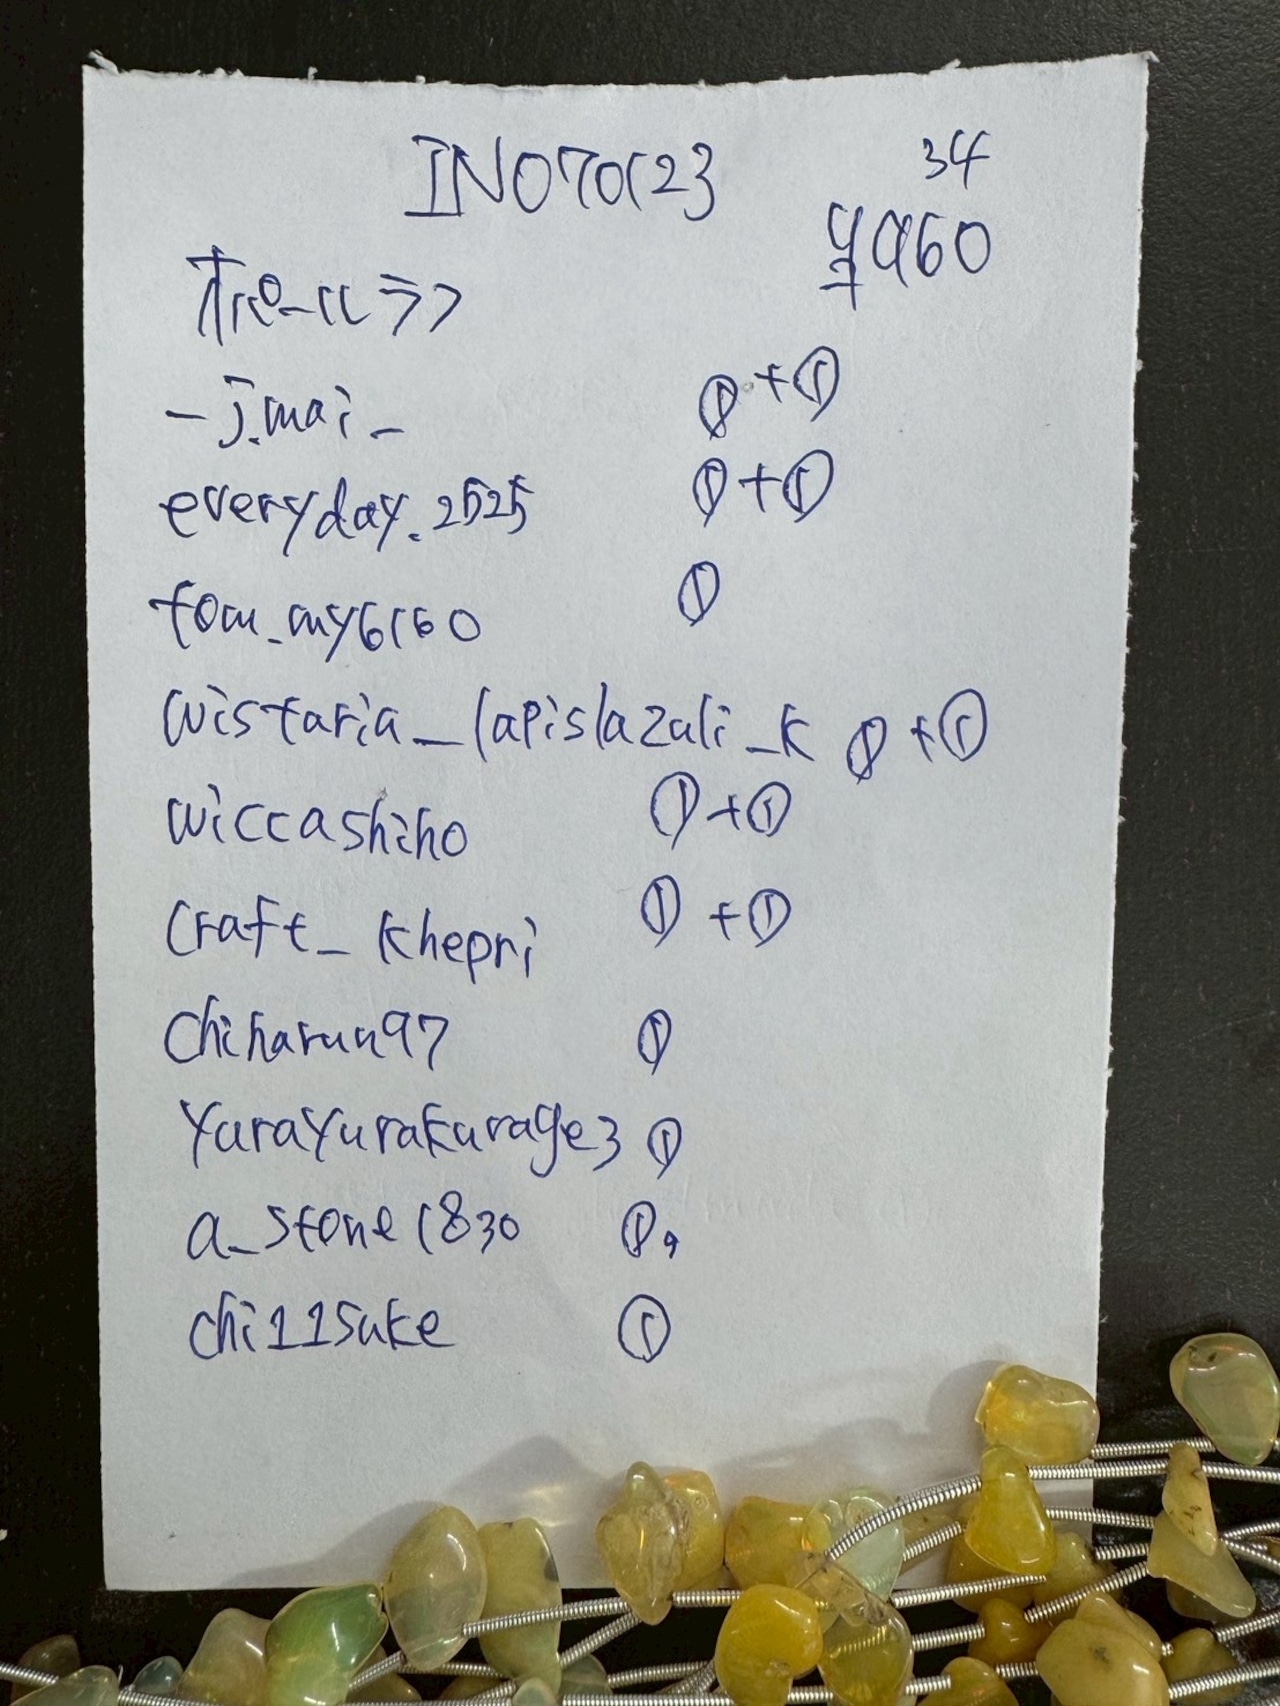 IN070123
34
¥960
- j.mai _
everyday.2525 ①+①
tom_my6160 ①
wistaria_lapislazuli_k ①+①
wiccashiho ①+①
craft_khepri ①+①
chiharun97 ①
yurayurakurage3 ①
a_stone1830 ①,
chi11suke ①